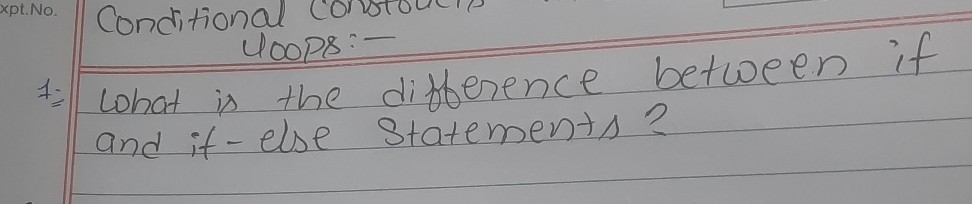 xpt.No.
Conditional Constructs
Loops:-
1:- What is the difference between if
and if-else Statements?